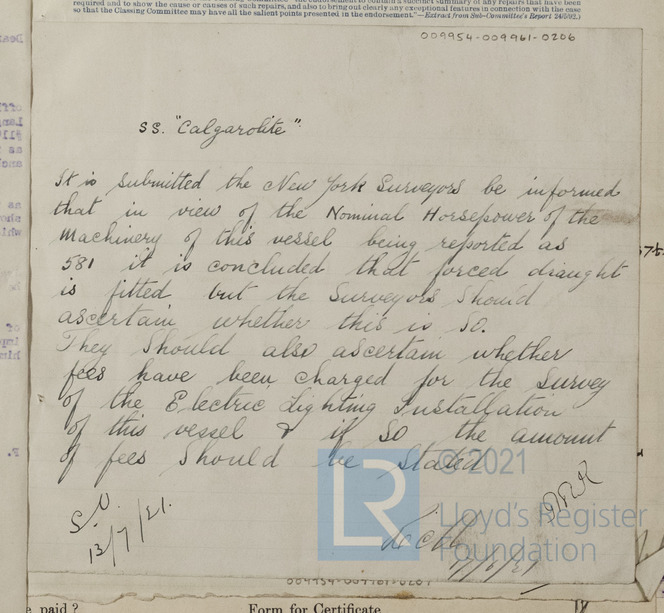 required and to show the cause or causes of such repairs, and also to bring out clearly any exceptional features in connection with the case
so that the Classing Committee may have all the salient points presented in the endorsement."—Extract from Sub-Committee's Report 24/5/92.)
009954-009961-0206
SS. "Calgarolite".
It is submitted the New York Surveyors be informed
that in view of the Nominal Horsepower of the
Machinery of this vessel being reported as
581 it is concluded that forced draught
is fitted but the Surveyors should
ascertain whether this is so.
They should also ascertain whether
fees have been charged for the Survey
of the Electric Lighting Installation
of this vessel & if so the amount
of fees should be stated
© 2021
Lloyd's Register
Foundation
13/7/21.
009954-009961-0207
e paid ?
Form for Certificate